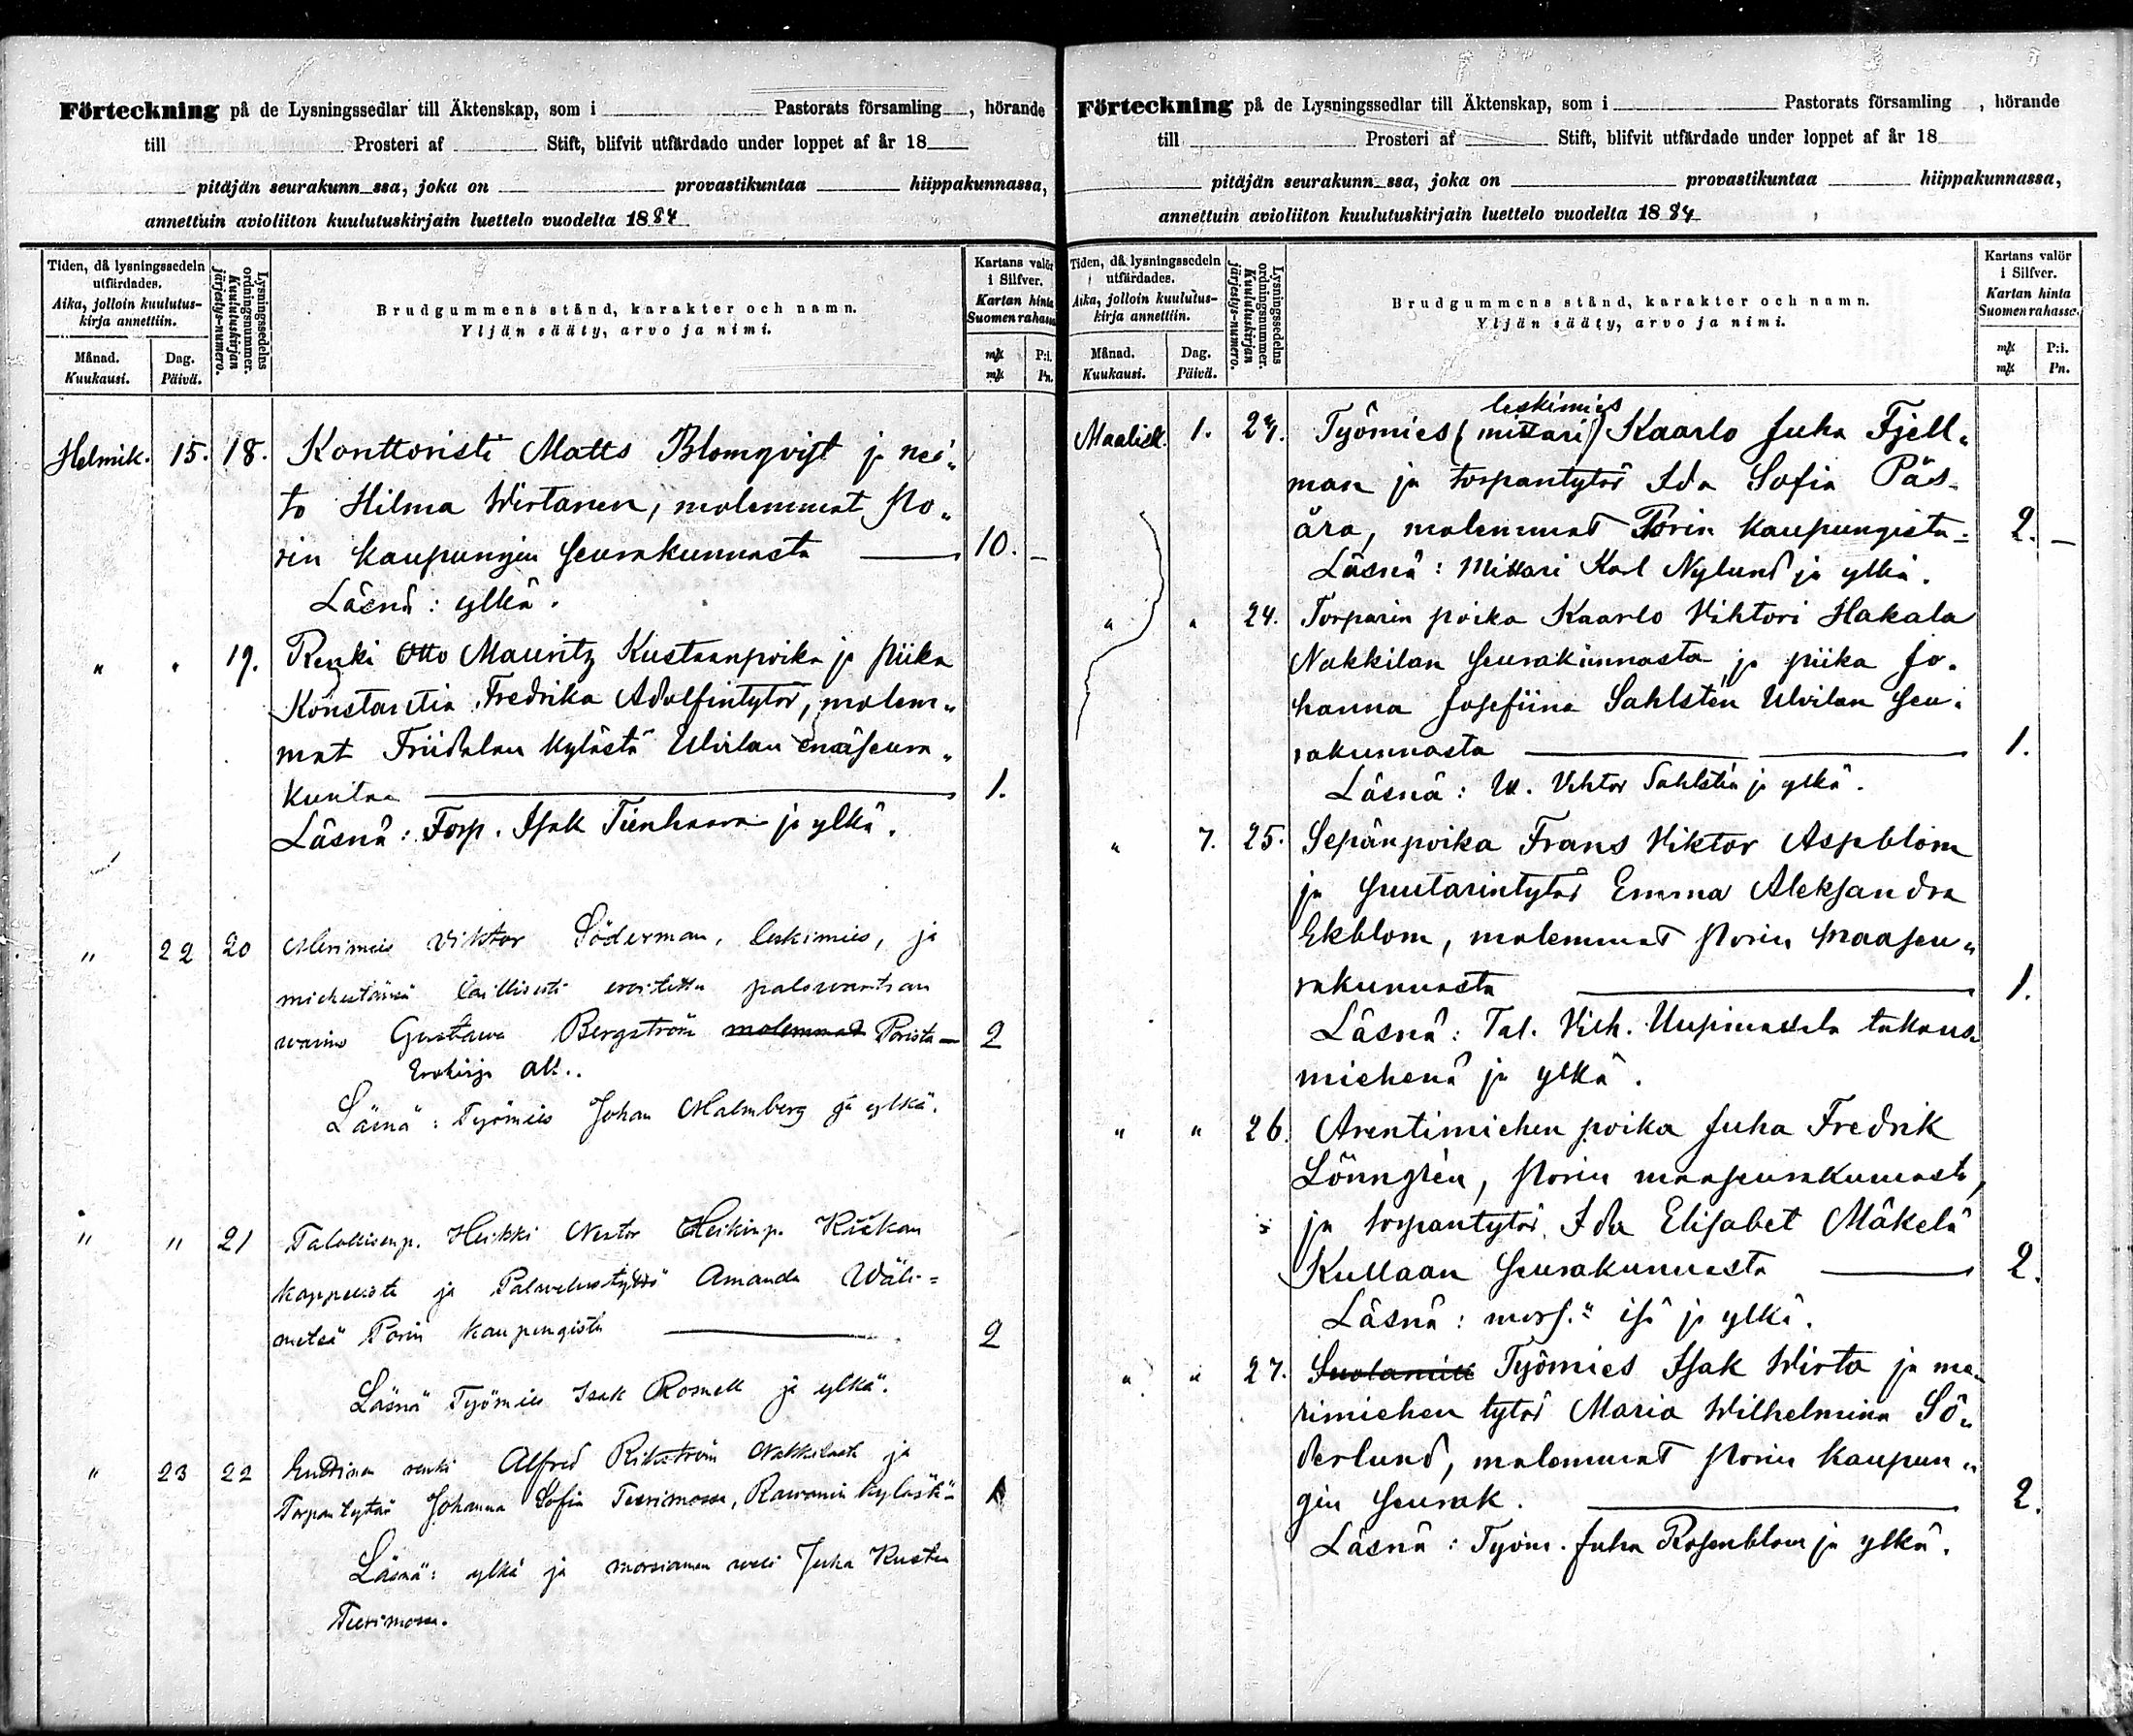 Förteckning på de Lysningssedlar till Äktenskap, som i Pastorats församling , hörande
till Prosteri af Stift, blifvit utfärdade under loppet af år 18
pitäjän seurakunn ssa, joka on provastikuntaa hiippakunnassa,
annettuin avioliiton kuulutuskirjain luettelo vuodelta 1884
Tiden, då lysningssedeln
utfärdades.
Aika, jolloin kuulutus-
kirja annettiin.
Månad.
Kuukausi.
Dag.
Päivä.
Lysningssedelns
ordningsnummer.
Kuulutuskirjan
järjestys-numero.
Brudgummens stånd, karakter och namn.
Yljän sääty, arvo ja nimi.
Kartans valör
i Silfver.
Kartan hinta
Suomen rahassa
mk P:i.
mk Pn.
Helmik. 15. 18. Konttoristi Matts Blomqvist ja nei„
to Hilma Wirtanen, molemmat Po„
rin kaupungin seurakunnasta 10. –
Läsnä: ylkä.
" " 19. Renki Otto Mauritz Kustaanpoika ja piika
Konstantia Fredrika Adolfintytär, molem„
mat Friidalan kylästä Ulvilan emäseura„
kuntaa 1.
Läsnä: Torp. Isak Tienhaara ja ylkä.
" 22 20 Merimies Viktor Söderman, leskimies, ja
miehestänsä laillisesti eroitettu palovartian
vaimo Gustava Bergström molemmat Porista — 2
Erokirja all..
Läsnä: Työmies Johan Malmberg ja ylkä.
" " 21 Talollisenp. Heikki Nestor Heikinp.
kappelista ja Palvelustyttö Amanda Wäli=
metsä Porin kaupungista 2
Läsnä Työmies Isak Rosnell ja ylkä.
" 23 22 Entinen renki Alfred Nakkilasta ja
Torpantytär Johanna Sofia Teerimossa, Ravanin kylästä 1
Läsnä: ylkä ja morsiamen veli Juha Kustaa
Teerimossa.
Förteckning på de Lysningssedlar till Äktenskap, som i Pastorats församling , hörande
till Prosteri af Stift, blifvit utfärdade under loppet af år 18
pitäjän seurakunn ssa, joka on provastikuntaa hiippakunnassa,
annettuin avioliiton kuulutuskirjain luettelo vuodelta 1884
Tiden, då lysningssedeln
utfärdades.
Aika, jolloin kuulutus-
kirja annettiin.
Månad.
Kuukausi.
Dag.
Päivä.
Lysningssedelns
ordningsnummer.
Kuulutuskirjan
järjestys-numero.
Brudgummens stånd, karakter och namn.
Yljän sääty, arvo ja nimi.
Kartans valör
i Silfver.
Kartan hinta
Suomen rahassa.
mk P:i.
mk Pn.
leskimies
Maalisk. 1. Työmies (mittari) Kaarlo Juha Fjell„
man ja torpantytär Ida Sofia Päs-
ära, molemmat Porin kaupungista – 2. –
Läsnä: Mittari Karl Nylund ja ylkä.
" " 24. Torparin poika Kaarlo Vihtori Hakala
Nakkilan seurakunnasta ja piika Jo„
hanna Josefiina Sahlstén Ulvilan seu„
rakunnasta 1.
Läsnä: Vihtor Sahlstén ja ylkä.
" 7. 25. Sepänpoika Frans Viktor Aspblom
ja suutarintytär Emma Aleksandra
Ekblom, molemmat Porin maaseu„
rakunnasta 1.
Läsnä: Tal. Vilh. Uupinaskala takaus„
miehenä ja ylkä.
" " 26. Arentimiehen poika Juha Fredrik
Lönngrén, Porin maaseurakunnasta,
ja torpantytär Ida Elisabet Mäkelä
Kullaan seurakunnasta 2.
Läsnä: mors." isä ja ylkä.
" " 27. Työmies Isak Wirta ja me„
rimiehen tytär Maria Wilhelmina Sö„
derlund, molemmat Porin kaupun„
gin seurak. 2.
Läsnä: Työm. Juha Rosenblom ja ylkä.